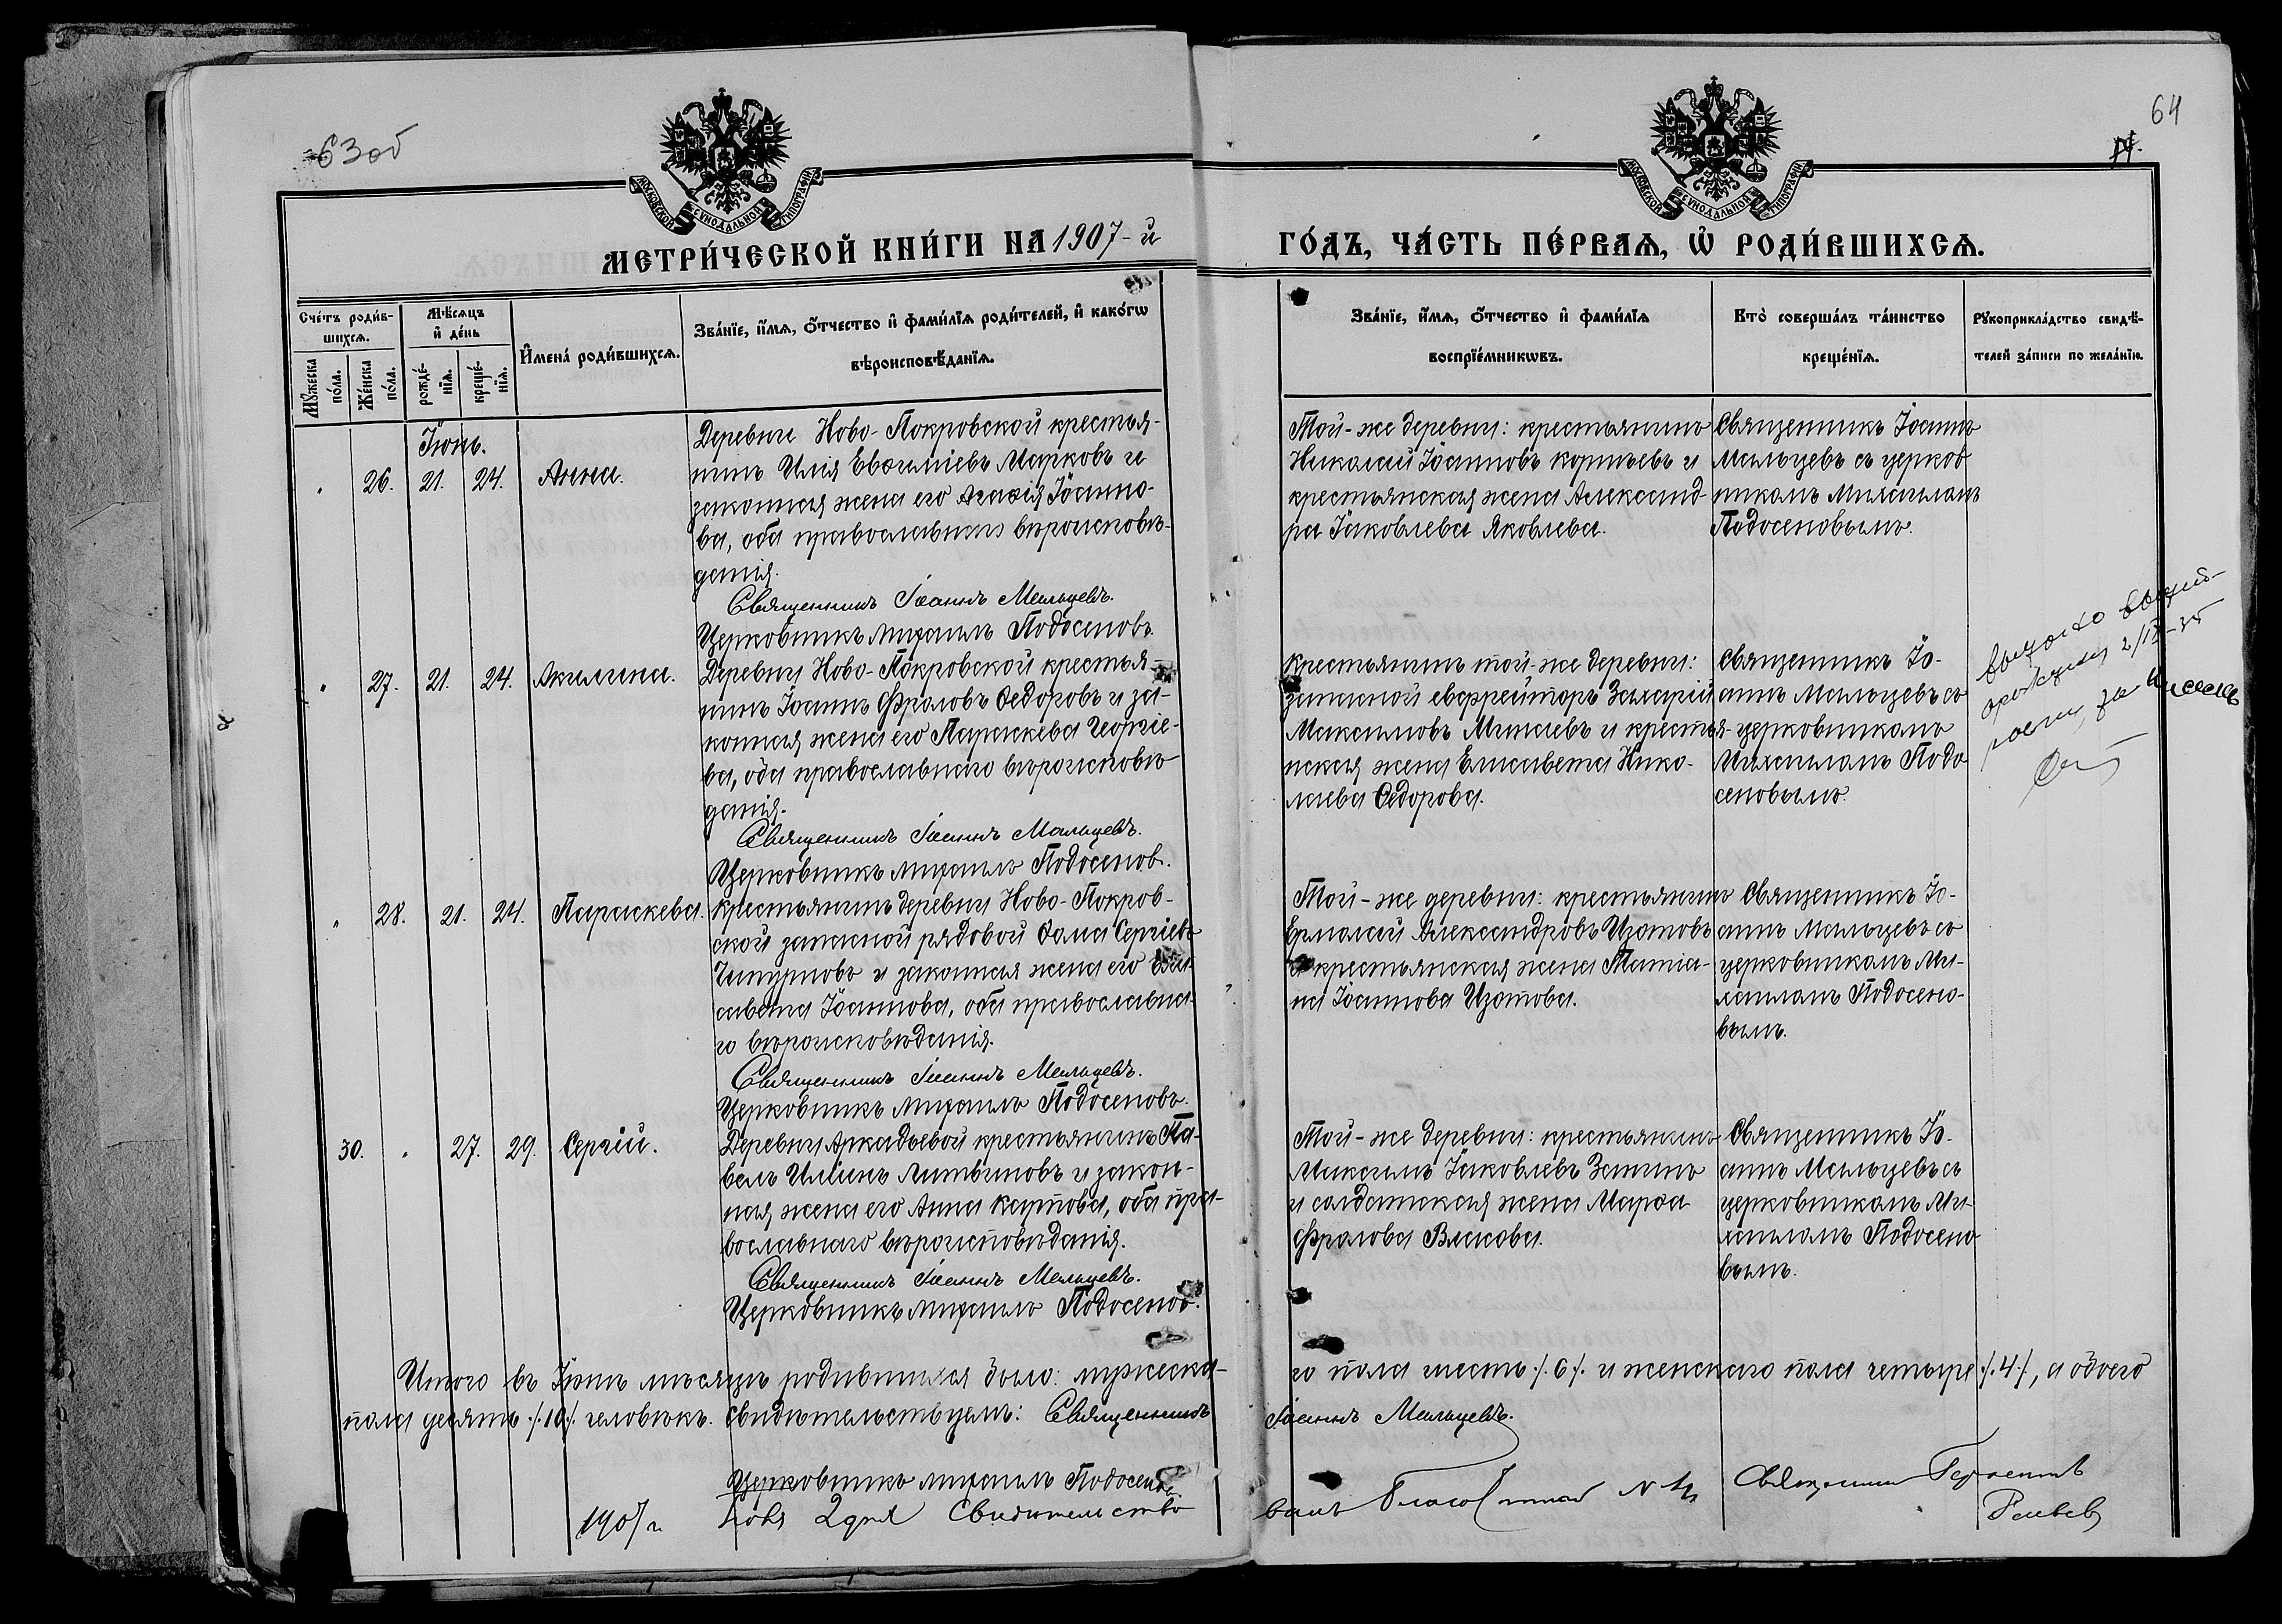 63об
64
МОСКОВСКОЙ СѴНОДАЛЬНОЙ ТИПОГРАФІИ
МОСКОВСКОЙ СѴНОДАЛЬНОЙ ТИПОГРАФІИ
МЕТРИ́ЧЕСКОЙ КНИ́ГИ НА 1907-й
ГО́ДЪ, ЧА́СТЬ ПЕ́РВАѦ, Ѡ҆ РОДИ́ВШИХСѦ.
Сче́тъ роди́в-
шихсѧ.
Мѣ́сѧцъ
и҆ де́нь
Мꙋ́жеска
по́ла.
Же́нска
по́ла.
рожде́-
нїѧ.
креще́-
нїѧ.
И҆мена̀ роди́вшихсѧ.
Зва́нїе, и҆́мѧ, ѻ҆́тчество и҆ фами́лїѧ роди́телей, и҆ како́гѡ
вѣроисповѣ́данїѧ.
Зва́нїе, и҆́мѧ, ѻ҆́тчество и҆ фами́лїѧ
воспрїе́мникѡвъ.
Кто̀ соверша́лъ та́инство
креще́нїѧ.
Рꙋкоприкла́дство свидѣ́-
телей за́писи по жела́нїю.
Іюнь.
" 26. 21. 24. Анна.
Деревни Ново-Покровской крестья-
нинъ Илія Евѳиміевъ Марковъ и
законная жена его Агаѳія Іоанно-
ва, оба православнаго вѣроисповѣ-
данія.
Священникъ Іоаннъ Мальцевъ.
Церковникъ Михаилъ Подосеновъ.
Той-же деревни: крестьянинъ
Николай Іоанновъ Корнѣевъ и
крестьянская жена Александ-
ра Іаковлева Яковлева.
Священникъ Іоаннъ
Мальцевъ съ церков
никомъ Михаиломъ
Подосеновымъ.
" 27. 21. 24. Акилина.
Деревни Ново-Покровской крестья-
нинъ Іоаннъ Фроловъ Ѳедоровъ и за-
конная жена его Параскева Георгіе-
ва, оба православнаго вѣроисповѣ-
данія.
Священникъ Іоаннъ Мальцевъ.
Церковникъ Михаилъ Подосенов.
Крестьянинъ той-же деревни:
запасной ефрейторъ Захарій
Максимовъ Минаевъ и крестья-
нская жена Елисавета Нико-
лаева Ѳедорова.
Священникъ Іо-
аннъ Мальцевъ съ
церковникомъ
Михаиломъ Подо
сеновымъ.
2/IX-35
" 28. 21. 24. Параскева.
Крестьянинъ деревни Ново-Покров-
ской запасной рядовой Ѳома Сергіевъ
и законная жена его Ели-
савета Іоаннова, оба православна-
го вѣроисповѣданія.
Священникъ Іоаннъ Мальцевъ.
Церковникъ Михаилъ Подосеновъ.
Той-же деревни: крестьянинъ
Ермолай Александровъ Изотовъ
и крестьянская жена Татіа-
на Іоаннова Изотова.
Священникъ Іо-
аннъ Мальцевъ съ
церковникомъ Ми-
хаиломъ Подосено-
вымъ.
30. " 27. 29. Сергій.
Деревни Аркадьевой крестьянинъ Па-
велъ Ильинъ Литвиновъ и закон-
ная жена его Анна Карпова, оба пра-
вославнаго вѣроисповѣданія.
Священникъ Іоаннъ Мальцевъ.
Церковникъ Михаилъ Подосенов.
Той-же деревни: крестьянинъ
Максимъ Іаковлевъ Занинъ
и солдатская жена Марѳа
Фролова Власова.
Священникъ Іо-
аннъ Мальцевъ съ
церковникомъ Ми-
хаиломъ Подосено
вымъ.
Итого въ Іюнѣ мѣсяцѣ родившихся было: мужеска-
го пола шесть ./.6./. и женскаго пола четыре ./.4./., а обоего
пола десять ./.10./. человѣкъ. Свидѣтельствуемъ: Священникъ
Іоаннъ Мальцевъ.
Церковникъ Михаилъ Подосеновъ.
1907 г. 2 дня Свидѣтельство
валъ Священникъ